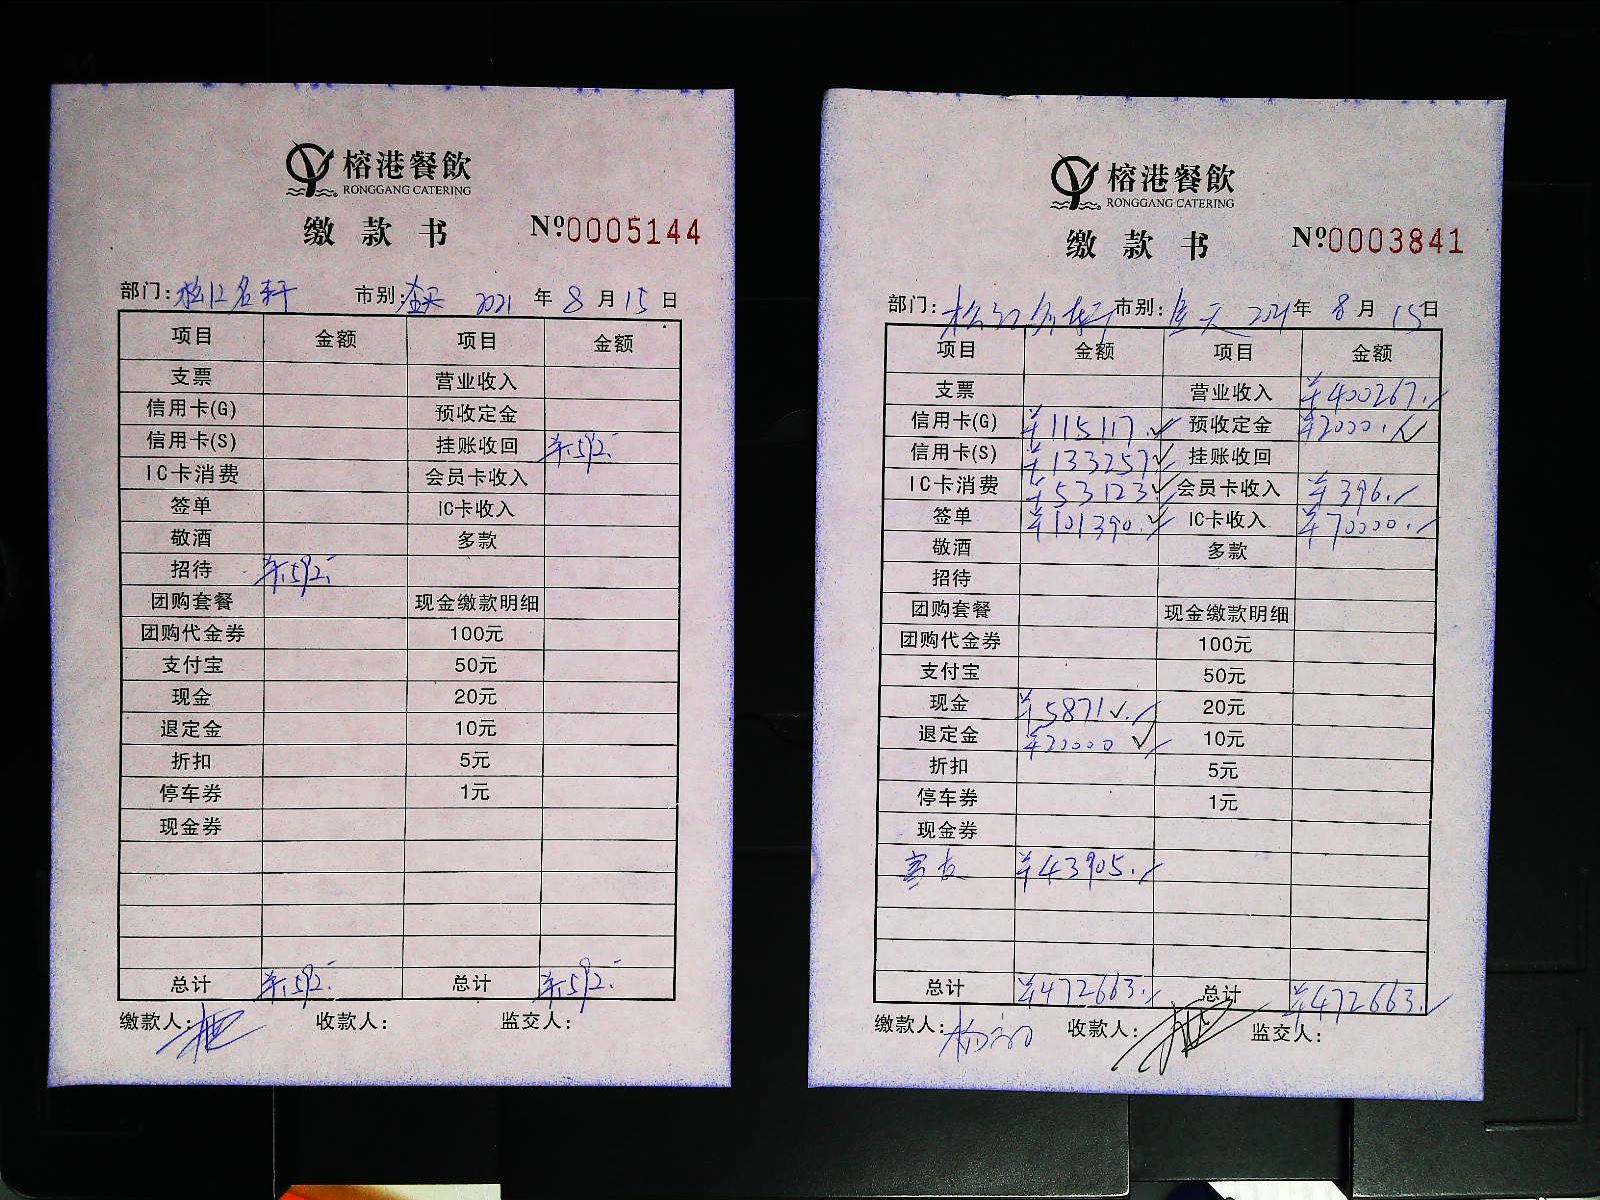 榕港餐飲
RONGGANG CATERING
缴款书 Nº.0005144
部门:松江名轩 市别:全天 2021年8月15日
项目 金额 项目 金额
支票 营业收入
信用卡(G) 预收定金
信用卡(S) 挂账收回 ¥592.-
IC卡消费 会员卡收入
签单 IC卡收入
敬酒 多款
招待 ¥592.-
团购套餐 现金缴款明细
团购代金券 100元
支付宝 50元
现金 20元
退定金 10元
折扣 5元
停车券 1元
现金券
总计 ¥592.- 总计 ¥592.-
缴款人: 收款人: 监交人:
榕港餐飲
RONGGANG CATERING
缴款书 Nº.0003841
部门:松江名轩 市别:全天 2021年8月15日
项目 金额 项目 金额
支票 营业收入 ¥400267.-
信用卡(G) ¥115117.- 预收定金 ¥2000.-
信用卡(S) ¥133257.- 挂账收回
IC卡消费 ¥53123.- 会员卡收入 ¥396.-
签单 ¥101390.- IC卡收入 ¥70000.-
敬酒 多款
招待
团购套餐 现金缴款明细
团购代金券 100元
支付宝 50元
现金 ¥5871.- 20元
退定金 ¥20000 10元
折扣 5元
停车券 1元
现金券
¥43905.-
总计 ¥472663.- 总计 ¥472663.-
缴款人: 收款人: 监交人: